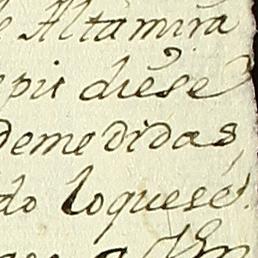 Altamira
pie diese
demedidas,
do loquese